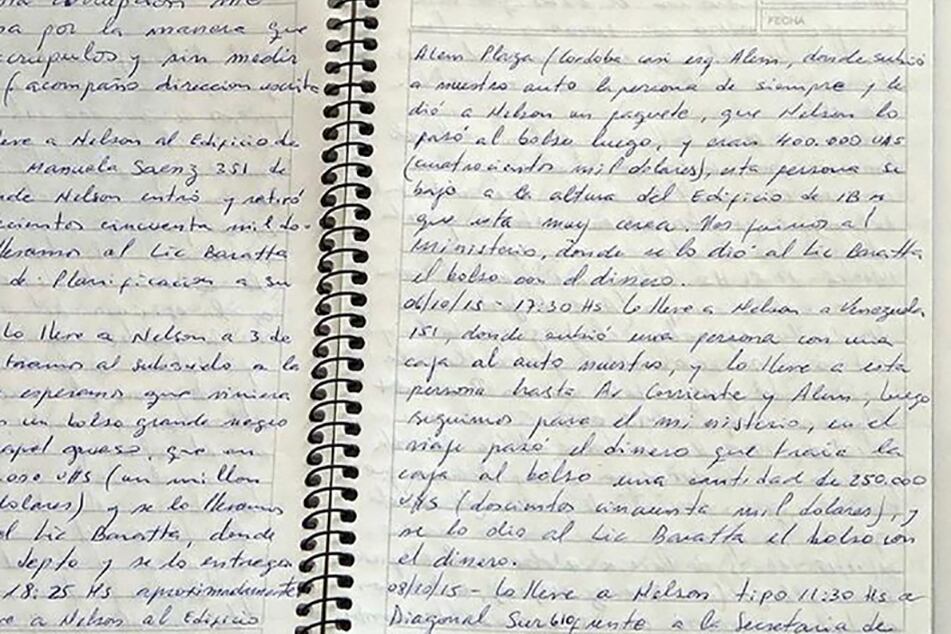 por la manera que
escrupulos y sin medir
(acompaño direccion escrita
lleve a Nelson al Edificio de
Manuela Saenz 351 de
Nelson entró y retiró
cincuenta mil do-
llevamos al Lic Baratta
de Planificacion a su
Lo lleve a Nelson a 3 de
al subsuelo a la
esperamos que viniera
un bolso grande negro
papel grueso, que
000 U$S (un millon
dolares) y se lo llevamos
al Lic Baratta, donde
depto y se lo entrega
18:25 Hs aproximadamente
a Nelson al Edificio
FECHA
Alem Plaza (Cordoba casi esq Alem, donde subió
a nuestro auto la persona de siempre y le
dió a Nelson un paquete, que Nelson lo
pasó al bolso luego, y eran 400.000 U$S
(cuatrocientos mil dolares), esta persona se
bajo a la altura del Edificio de IBM
que está muy cerca. Nos fuimos al
ministerio, donde se lo dió al Lic Baratta
el bolso con el dinero.
06/10/15 - 17:30 Hs Lo lleve a Nelson a Venezuela
151, donde subió una persona con una
caja al auto nuestro, y lo lleve a esta
persona hasta Av Corriente y Alem, luego
seguimos para el ministerio, en el
viaje pasó el dinero que traia la
caja al bolso una cantidad de 250.000
U$S (doscientos cincuenta mil dolares), y
se lo dio al Lic Baratta el bolso con
el dinero.
08/10/15 - Lo lleve a Nelson tipo 11:30 Hs a
Diagonal Sur 610 frente a la Secretaria de